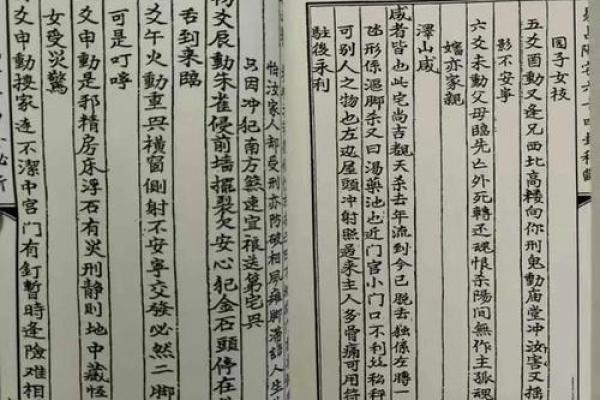 子女
五爻酉動又逢兄西北高樓向你刑鬼動庙堂冲汝害又
影不安寧
六爻未動父母臨先亡外死轉还魂恨杀陽間無作主孤魂
亦家親
澤山咸
咸者皆也此宅尚吉觀天杀去年流到今已脱去独係左勝一
氹形係漏脚杀又曰湯藥池也近门宫小门口不利丝私秤
可别人之物也左边屋頭冲射照過来主人多骨痛可用符
駐後永利
怡汝家人部受刑亦防破相風癱脚人生
只因冲犯南方煞速宜禳送第宅興
爻辰動朱雀侵前墙擺裂欠安心犯金石頭停在
舌到來臨
爻午火動重興橫窗側射不安寧交發必然二脚
可是叮嚀
爻申動是邪精房床浮石有災刑静則地中藏怪
女受災驚
爻申動搜家连不潔中宫门有釘暫時逢險难相